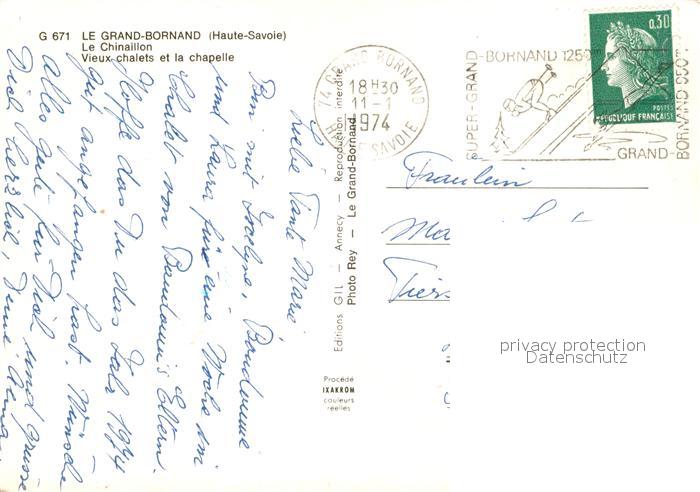 G 671 LE GRAND-BORNAND (Haute-Savoie)
Le Chinaillon
Vieux chalets et la chapelle
Liebe Tante Marie,
Bin mit Jocelyne, Baudouin
und Laura für eine Woche im
Chalet von Baudouin's Eltern.
Hoffe das Du das Jahr 1974
gut angefangen hast. Wünsche
Alles gute für Dich und grüsse
Dich herzlich, Deine
Editions GIL — Annecy — Reproduction interdite
Photo Rey — Le Grand-Bornand
Procédé
IXAKROM
couleurs
réelles
74 GRAND BORNAND
18H30
11-1
1974
HTE SAVOIE
SUPER-GRAND-BORNAND 1250m
GRAND-BORNAND 950m
0,30
POSTES
REPUBLIQUE FRANÇAISE
Fräulein
Ma
Tiers
privacy protection
Datenschutz